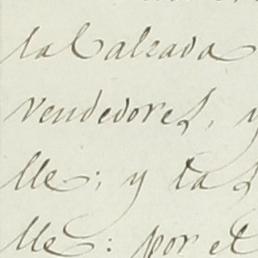 la Calzada
vendedores, y
lle; y las
lle: por el